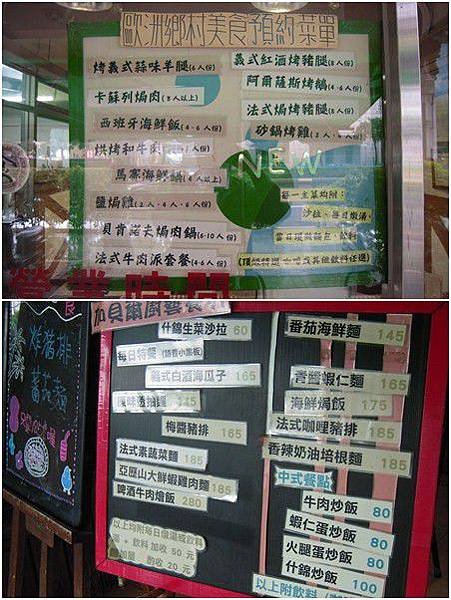 歐洲鄉村美食預約菜單
烤義式蒜味羊腿(6人份)
卡蘇列焗肉(8人以上)
西班牙海鮮飯(4-6人份)
烘烤和牛肉
馬賽海鮮鍋(4人以上)
鹽焗雞(2人、4人、6人份)
貝肯諾夫焗肉鍋(6-10人份)
法式牛肉派套餐(4-6人份)
義式紅酒烤豬腿(8人份)
阿爾薩斯烤鵝(4-6人份)
法式焗烤豬腿(8人份)
砂鍋烤雞
NEW
沙拉、每日燉湯
營業時間
加貝爾廚
什錦生菜沙拉 60
每日特餐
義式白酒海瓜子 165
145
梅醬豬排 165
法式素蔬菜麵 185
亞歷山大鮮蝦雞肉麵 185
啤酒牛肉燴飯 280
以上均附每日例湯或飲料
湯+飲料 加收 50 元
加量 酌收 20 元
番茄海鮮麵 145
青醬蝦仁麵 165
海鮮焗飯 175
法式咖哩豬排 185
香辣奶油培根麵 185
中式餐點
牛肉炒飯 80
蝦仁蛋炒飯 80
火腿蛋炒飯 80
什錦炒飯 100
以上附飲料
炸豬排
蕃茄麵